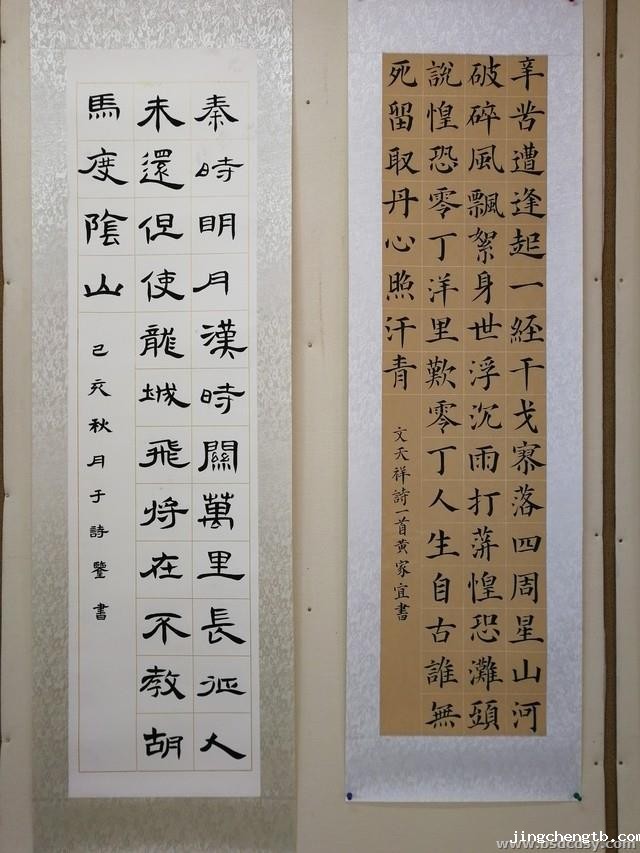 辛苦遭逢起一經干戈寥落四周星山河
破碎風飄絮身世浮沉雨打萍惶恐灘頭
說惶恐零丁洋里歎零丁人生自古誰無
死留取丹心照汗青
文天祥詩一首黃家宜書
秦時明月漢時關萬里長征人
未還但使龍城飛將在不教胡
馬度陰山
己亥秋月于詩鑒書
jingchengtb.com
www.bsdcdsy.com